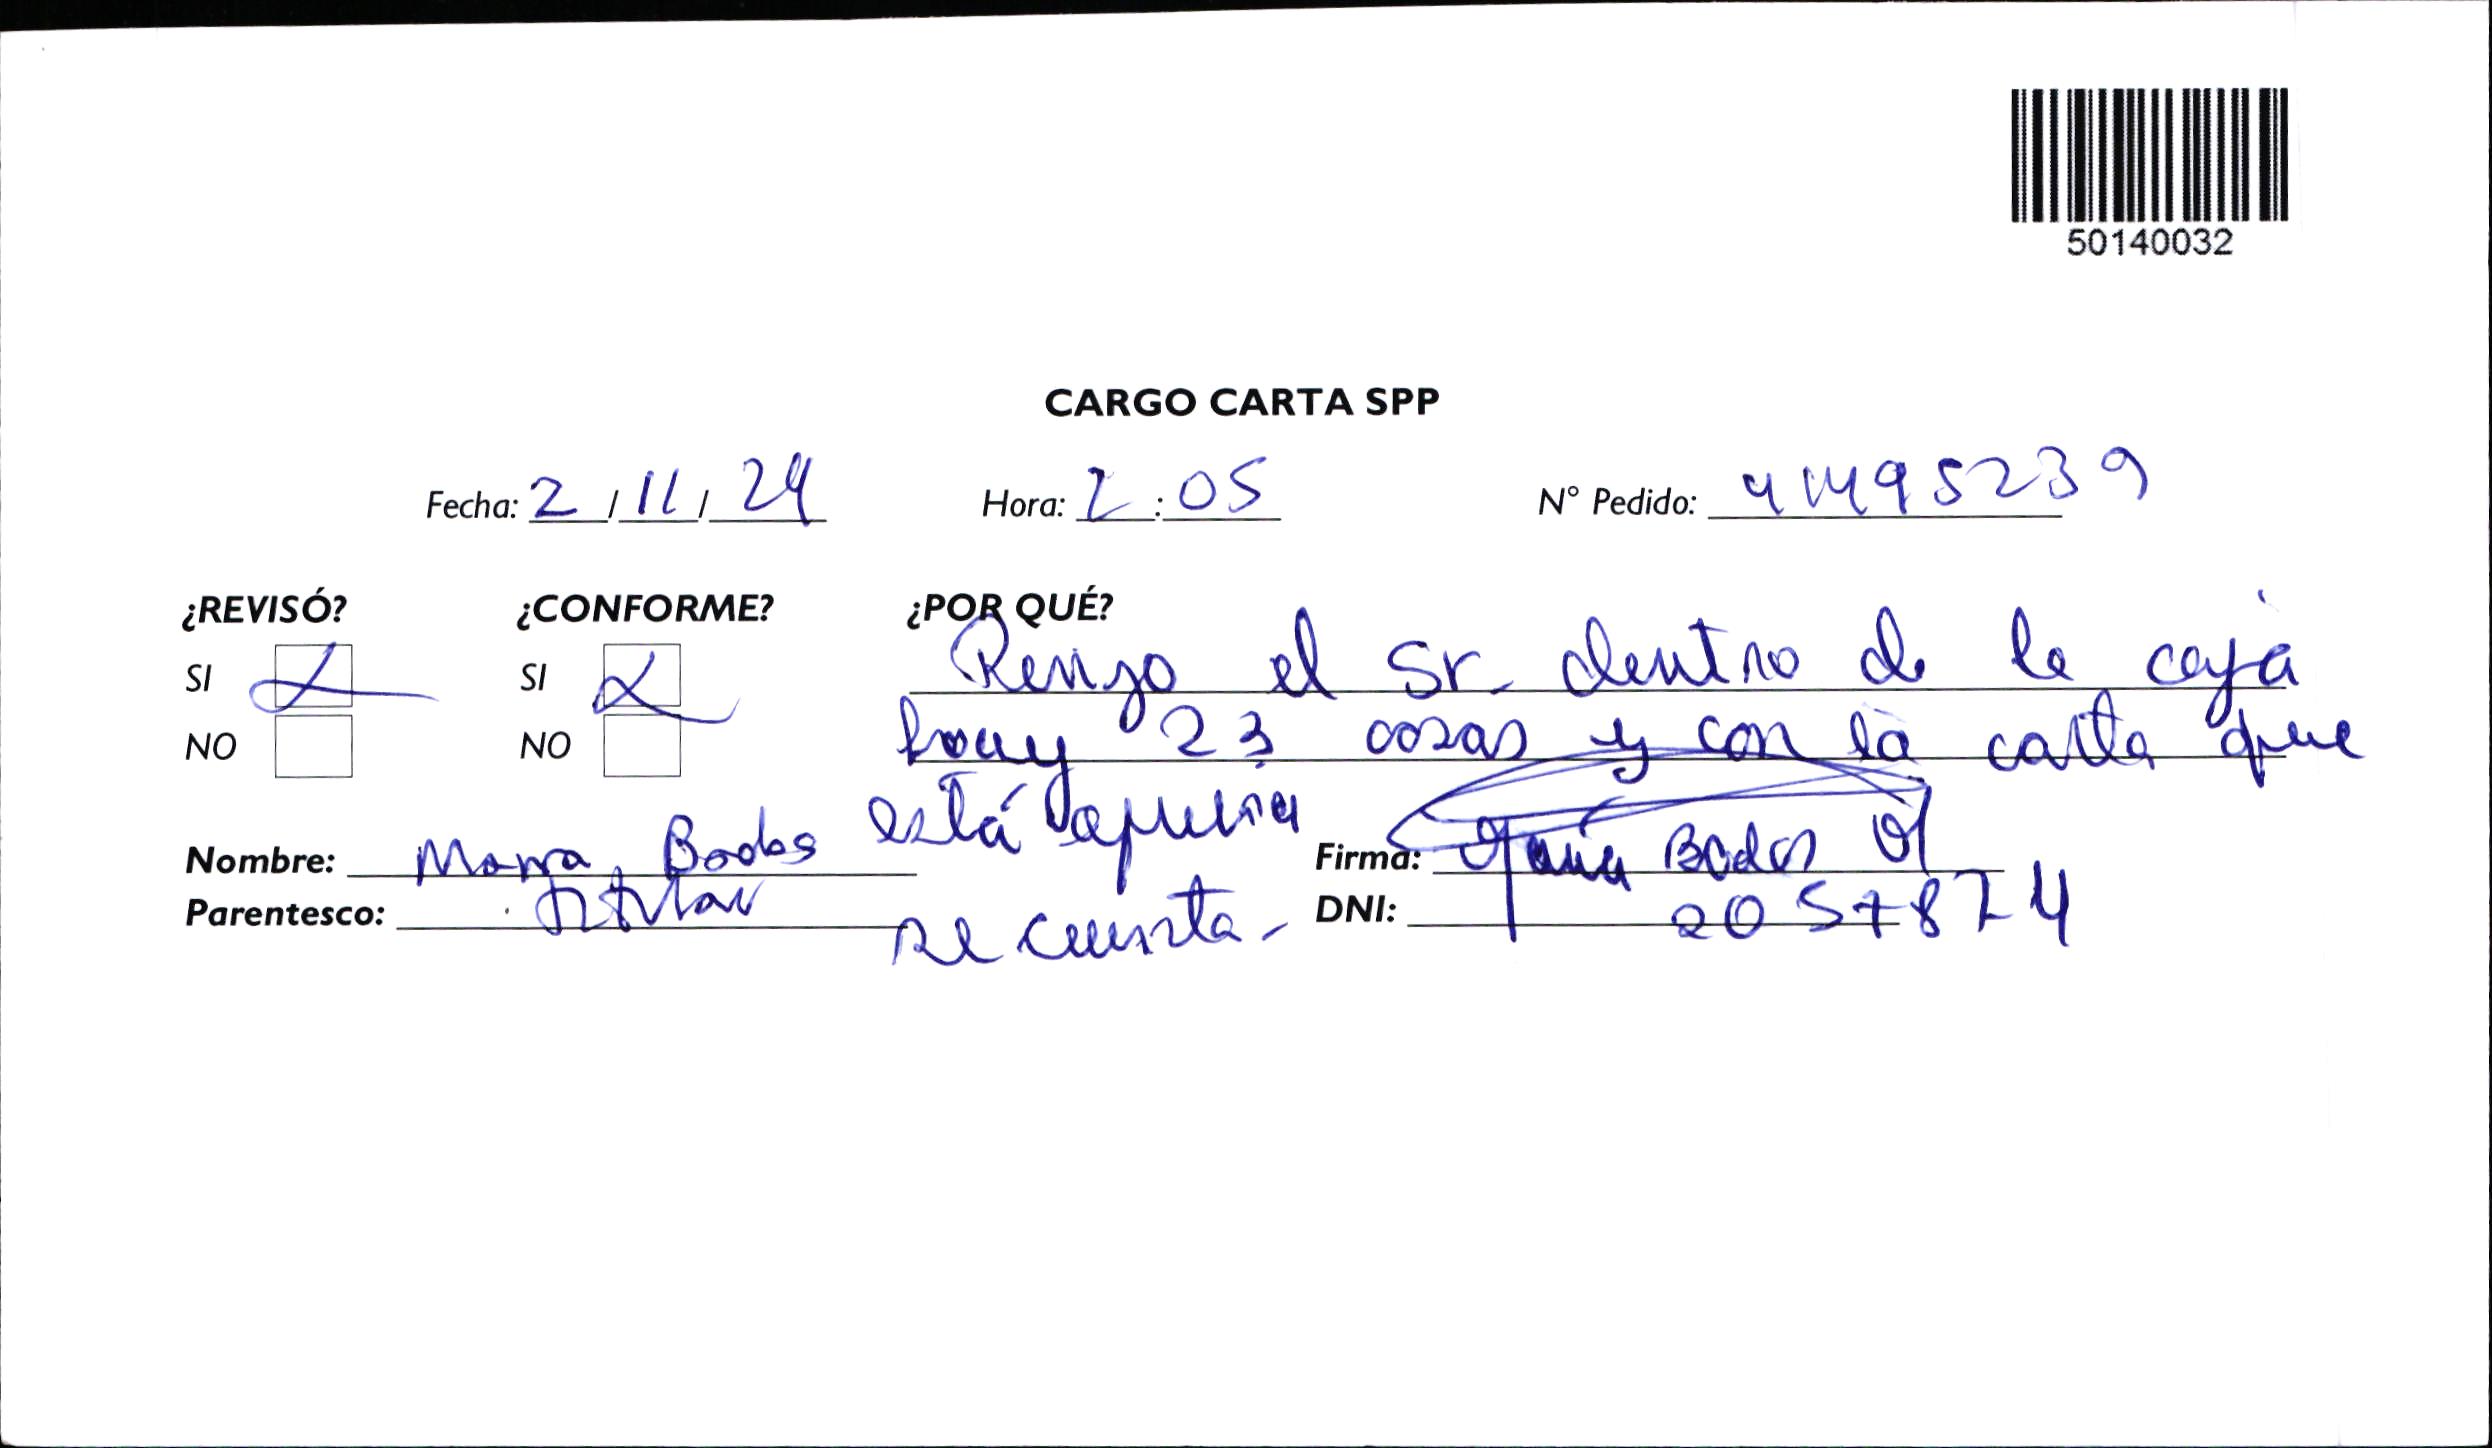 50140032
CARGO CARTA SPP
Fecha: 2 / 11 / 24 Hora: 2 : 05 N° Pedido: 41495239
¿REVISÓ? ¿CONFORME? ¿POR QUÉ?
SI SI Renzo el Sr. dentro de la caja
NO NO hay 23 cosas y con la carta que
está afuera
Nombre: Maria Bodos Firma: Maria Bodos
Parentesco: titular DNI: 20578724
se cuenta-